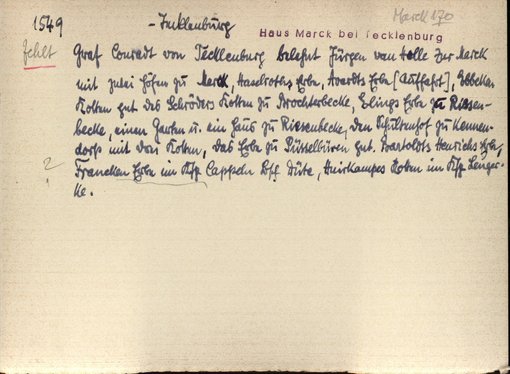 1549
- Tecklenburg
Marck 170
Haus Marck bei Tecklenburg
fehlt
Graf Conradt von Tecklenburg belehnt Jürgen van Holle zur Marck
mit zwei Höfen zu Marck, Haselroths Erbe, Erbe
Kotten gut des Schröders Kotten zu Brochterbecke, Elings Erbe zu Riesen-
becke, einen Garten u. ein Haus zu Riesenbecke, den Schultenhof zu Kennen-
dorf mit drei Kotten, das Erbe zu Düsselbüren gut. Bartoldts Henrichs Erbe,
? Francken Erbe im Ksp. Cappeln Bs. Düte, Kotten im Ksp. Lenger-
ke.